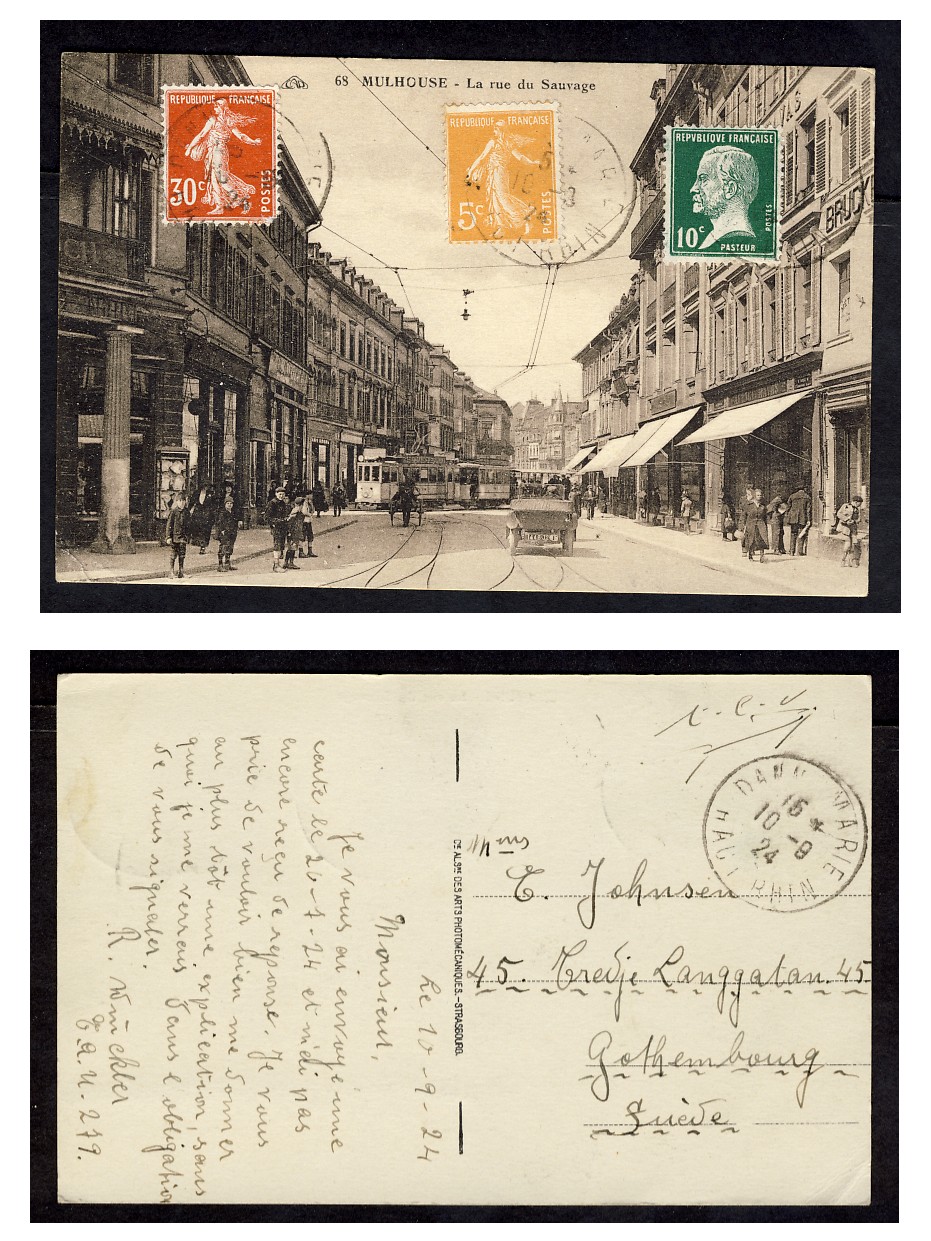 68 MULHOUSE - La rue du Sauvage
REPUBLIQUE FRANÇAISE
30c
POSTES
REPUBLIQUE FRANÇAISE
5c
POSTES
REPVBLIQVE FRANÇAISE
10c
POSTES
PASTEUR
T.C.V.
DANNEMARIE
15 *
10 - 9
24
HAUT RHIN
Cie ALSne DES ARTS PHOTOMÉCANIQUES.-STRASBOURG.
Le 10-9-24
Monsieur,
Je vous ai envoyé une
carte le 20-7-24 et n'ai pas
encore reçu de reponse. Je vous
prie de vouloir bien me donner
au plus tôt une explication, sans
quoi je me verrais dans l'obligation
de vous signaler.
R.
279.
Mons
C. Johnsen
45. Tredje Langgatan. 45
Gothembourg
Suède